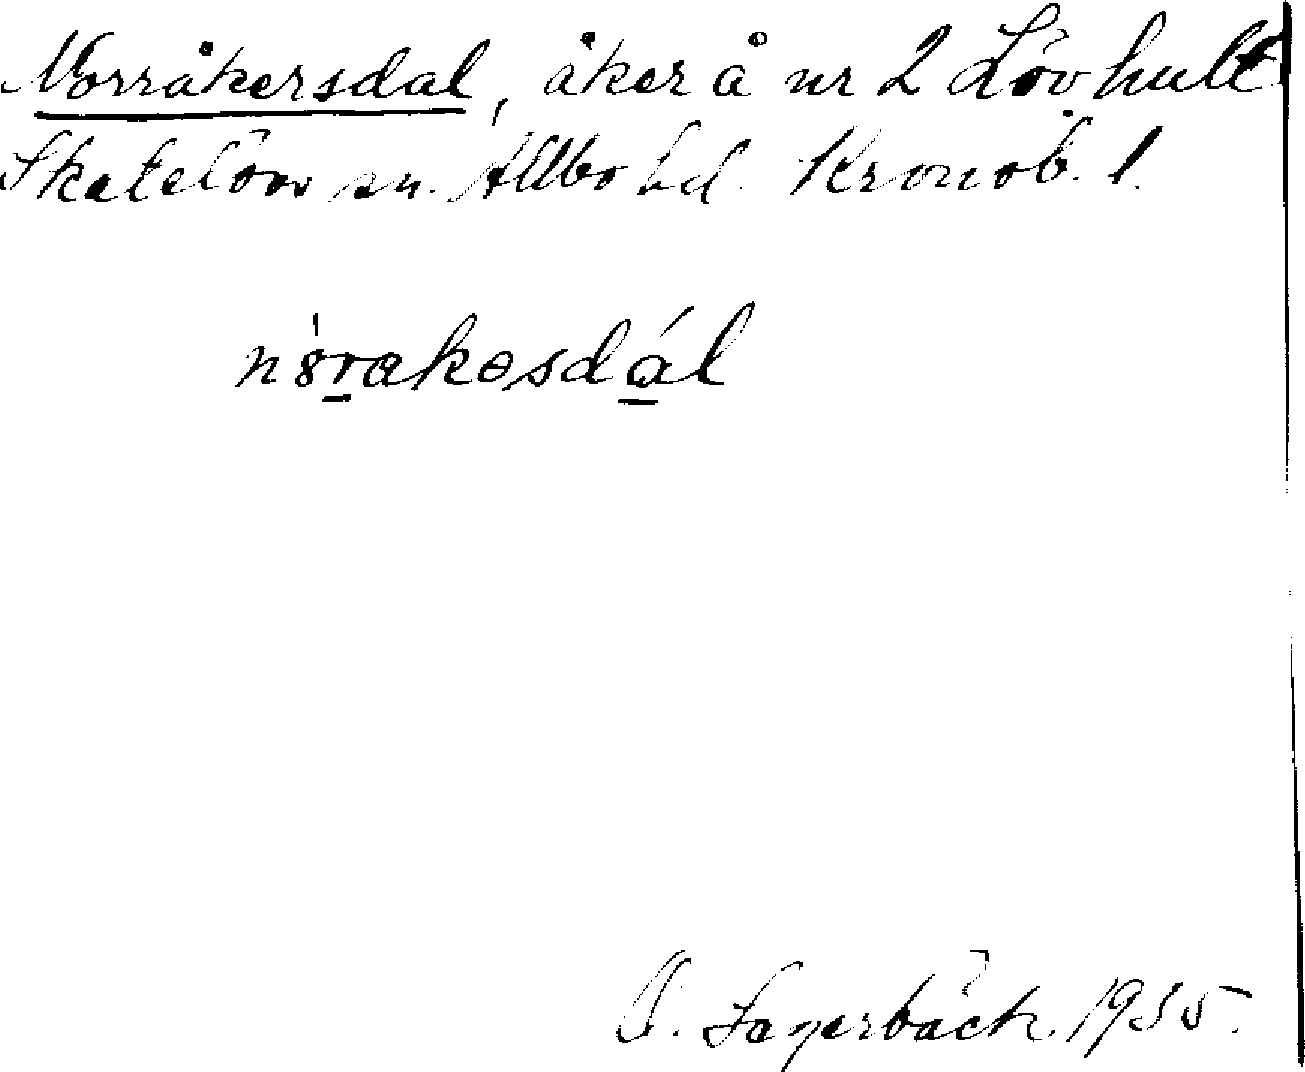 Norråkersdal, åker å nr 2 Lövhult
Skatelövs sn. Allbo hd. Kronob. l.
nörakosdál
O. Lagerbäck. 1935.